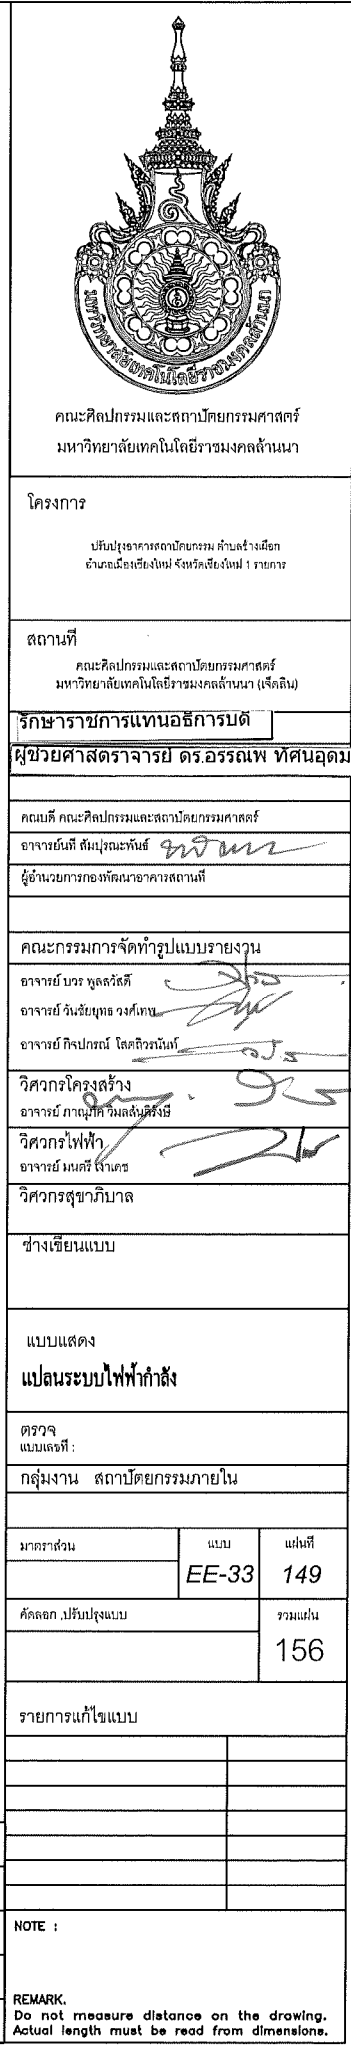 มหาวิทยาลัยเทคโนโลยีราชมงคลล้านนา
คณะศิลปกรรมและสถาปัตยกรรมศาสตร์
มหาวิทยาลัยเทคโนโลยีราชมงคลล้านนา
โครงการ
ปรับปรุงอาคารสถาปัตยกรรม ตำบลช้างเผือก
อำเภอเมืองเชียงใหม่ จังหวัดเชียงใหม่ 1 รายการ
สถานที่
คณะศิลปกรรมและสถาปัตยกรรมศาสตร์
มหาวิทยาลัยเทคโนโลยีราชมงคลล้านนา (เจ็ดลิน)
รักษาราชการแทนอธิการบดี
ผู้ช่วยศาสตราจารย์ ดร.อรรณพ ทัศนอุดม
คณบดี คณะศิลปกรรมและสถาปัตยกรรมศาสตร์
อาจารย์นที สัมปุรณะพันธ์
ผู้อำนวยการกองพัฒนาอาคารสถานที่
คณะกรรมการจัดทำรูปแบบรายงาน
อาจารย์ บวร พูลสวัสดิ์
อาจารย์ วันชัยยุทธ วงศ์เทพ
อาจารย์ กิจปกรณ์ โสตถิวรนันท์
วิศวกรโครงสร้าง
อาจารย์
วิศวกรไฟฟ้า
อาจารย์ มนตรี เงาเดช
วิศวกรสุขาภิบาล
ช่างเขียนแบบ
แบบแสดง
แปลนระบบไฟฟ้ากำลัง
ตรวจ
แบบเลขที่ :
กลุ่มงาน สถาปัตยกรรมภายใน
มาตราส่วน แบบ แผ่นที่
EE-33 149
คัดลอก ,ปรับปรุงแบบ รวมแผ่น
156
รายการแก้ไขแบบ
NOTE :
REMARK.
Do not measure distance on the drawing.
Actual length must be read from dimensions.